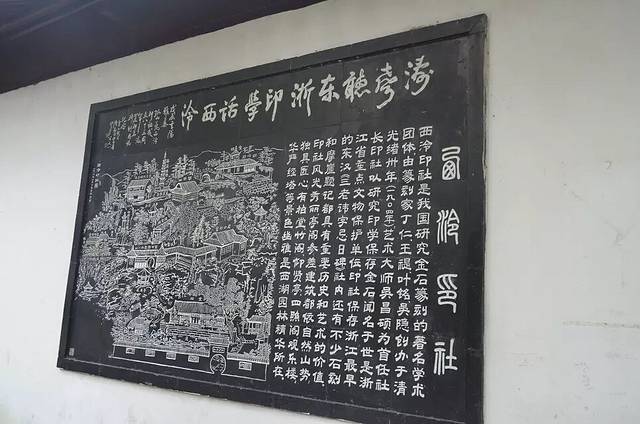 涛聲聽东浙印學话西泠
西泠印社
西泠印社是我国研究金石篆刻的著名学术
团体由篆刻家丁仁王禔叶铭吴隐创办于清
光绪卅年(一九〇四)艺术大师吴昌硕为首任社
长印社以研究印学保存金石闻名于世是浙
江省重点文物保护单位印社保存浙江最早
的东汉三老讳字忌日碑社内还有不少石刻
和摩崖题记都具有重要历史和艺术的价值.
印社风光秀丽亭阁参差建筑都依自然山势
独具匠心有柏堂竹阁仰贤亭四照阁观乐楼
华严经塔等景色幽雅是西湖园林精华所在.